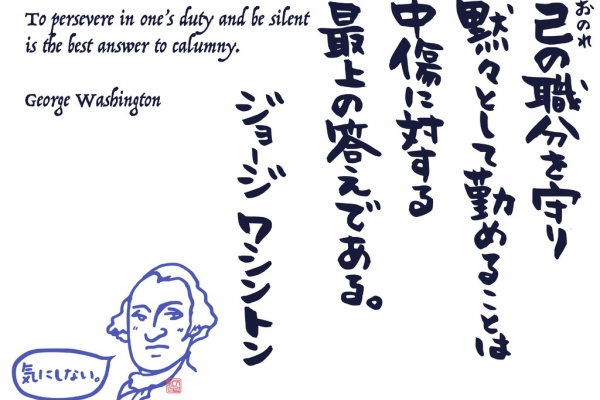 To persevere in one's duty and be silent
is the best answer to calumny.
George Washington
おのれ
己の職分を守り
黙々として勤めることは
中傷に対する
最上の答えである。
ジョージ ワシントン
気にしない。